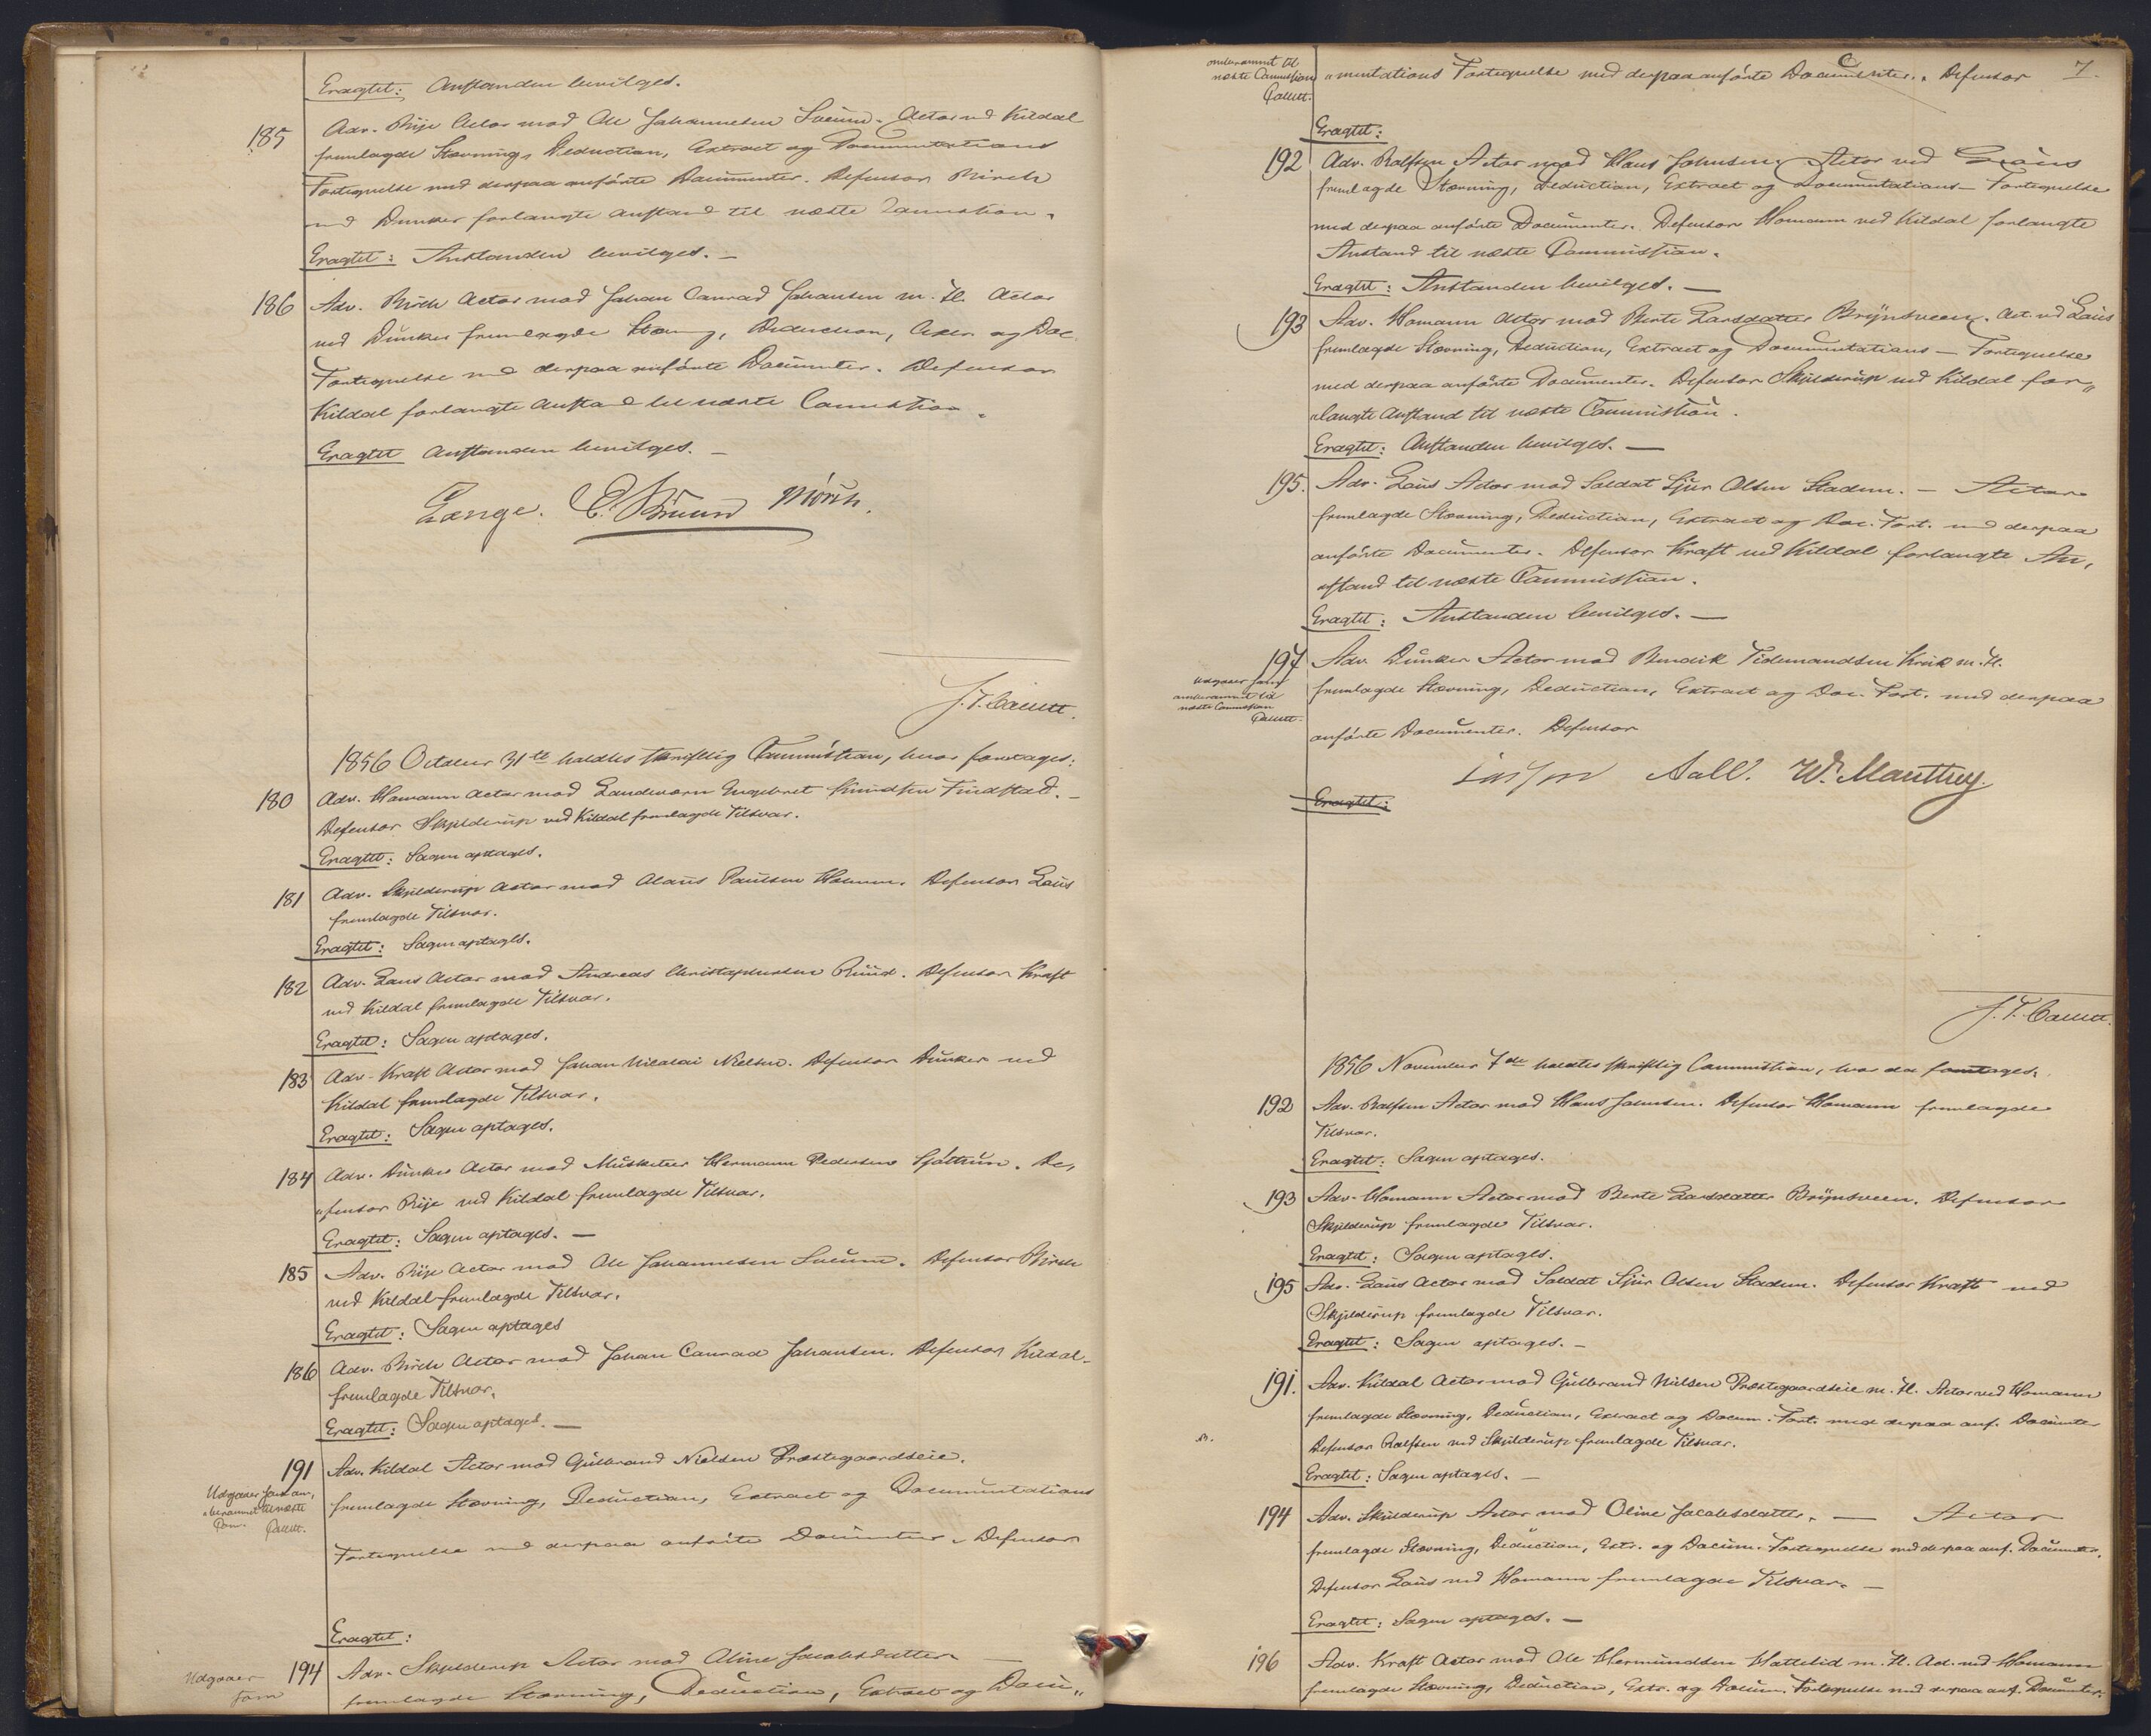 Eragtet: Anstanden bevilges.
185 Adv. Rije Actor mod Ole Johannesen Sveum. Actor ved Kildal
fremlagde Stævning, Deduction, Extract og Documentations
Fortegnelse med derpaa anførte Documenter. Defensor Birch
ved Dunker forlangte Anstand til næste Commission.
Eragtet: Anstanden bevilges. —
186 Adv. Birch Actor mod Johan Conrad Johansen m. Fl. Actor
ved Dunker fremlagde Stævning, Deduction, Extr. og Doc.
Fortegnelse med derpaa anførte Documenter. Defensor
Kildal forlangte Anstand til næste Commission.
Eragtet Anstanden bevilges. —
Lange. C. Bruun Mørch.
J. F. Collett.
1856 October 31te holdtes skriftlig Commission, hvor foretages:
180 Adv. Homann Actor mod Landværn Engebret Knudsen Findstad. —
Defensor Skjelderup ved Kildal fremlagde Tilsvar.
Eragtet: Sagen optages.
181 Adv. Skjelderup Actor mod Olaus Paulsen Holmen. Defensor Laus
fremlagde Tilsvar.
Eragtet: Sagen optages.
182 Adv. Laus Actor mod Andreas Christophersen Ruud. Defensor Kraft
ved Kildal fremlagde Tilsvar.
Eragtet: Sagen optages.
183 Adv. Kraft Actor mod Johan Nicolai Nielsen. Defensor Dunker ved
Kildal fremlagde Tilsvar.
Eragtet: Sagen optages.
184 Adv. Dunker Actor mod Musketeer Hermann Pedersen. De„
„fensor Rije ved Kildal fremlagde Tilsvar.
Eragtet: Sagen optages. —
185 Adv. Rije Actor mod Ole Johannesen Sveum. Defensor Birch
ved Kildal fremlagde Tilsvar.
Eragtet: Sagen optages
186 Adv. Birch Actor mod Johan Conrad Johansen. Defensor Kildal
fremlagde Tilsvar.
Eragtet: Sagen optages. —
191 Adv. Kildal Actor mod Gulbrand Nielsen Præstegaardseie.
Udgaaer som an„
„berammet til næste
Com. Collett.
fremlagde Stævning, Deduction, Extract og Documentations
Fortegnelse med derpaa anførte Documenter. Defensor
Eragtet:
194 Adv. Skjelderup Actor mod Oline Jacobsdatter. —
Udgaaer
som
fremlagde Stævning, Deduction, Extract og Docu„
7.
omberammet til
næste Commission
Collett.
„mentations Fortegnelse med derpaa anførte Documenter. Defensor
Eragtet:
192 Adv. Rolfsen Actor mod Hans Johnsen. Actor ved Laus
fremlagde Stævning, Deduction, Extract og Documentations-Fortegnelse
med derpaa anførte Documenter. Defensor Homann ved Kildal forlangte
Anstand til næste Commission.
Eragtet: Anstanden bevilges. —
193 Adv. Homann Actor mod Berte Larsdatter Brynsveen. Act. ved Laus
fremlagde Stævning, Deduction, Extract og Documentations-Fortegnelse
med derpaa anførte Documenter. Defensor Skjelderup ved Kildal for„
„langte Anstand til næste Commission.
Eragtet: Anstanden bevilges. —
195. Adv. Laus Actor mod Soldat Sjur Olsen Stadem. — Actor
fremlagde Stævning, Deduction, Extract og Doc. Fort. med derpaa
anførte Documenter. Defensor Kraft ved Kildal forlangte An„
„stand til næste Commission.
Eragtet: Anstanden bevilges. —
197 Adv. Dunker Actor mod Bendik Tidemandsen Krik m. Fl.
Udgaaer som
omberammet til
næste Commission
Collett.
fremlagde Stævning, Deduction, Extract og Doc. Fort. med derpaa
anførte Documenter. Defensor
Aall. W. Manthey.
Eragtet:
J. F. Collett.
1856 November 7de holdtes skriftlig Commission, hvor da foretages.
192 Adv. Rolfsen Actor mod Hans Johnsen. Defensor Homann fremlagde
Tilsvar.
Eragtet: Sagen optages.
193 Adv. Homann Actor mod Berte Larsdatter Brynsveen. Defensor
Skjelderup fremlagde Tilsvar.
Eragtet: Sagen optages.
195 Adv. Laus Actor mod Soldat Sjur Olsen Stadem. Defensor Kraft ved
Skjelderup fremlagde Tilsvar.
Eragtet: Sagen optages. —
191. Adv. Kildal Actor mod Gulbrand Nielsen Præstegaardseie m. Fl. Actor ved Homann
fremlagde Stævning, Deduction, Extract og Docum. Fort. med derpaa anf. Documenter
Defensor Rolfsen ved Skjelderup fremlagde Tilsvar.
Eragtet: Sagen optages. —
194 Adv. Skjelderup Actor mod Oline Jacobsdatter. — Actor
fremlagde Stævning, Deduction, Extr. og Docum. Fortegnelse med derpaa anf. Documenter.
Defensor Laus ved Homann fremlagde Tilsvar. —
Eragtet: Sagen optages. —
196 Adv. Kraft Actor mod Ole Hermundsen Hattelid m. Fl. Act. ved Homann
fremlagde Stævning, Deduction, Extr. og Docum. Fortegnelse med derpaa anf. Documenter.